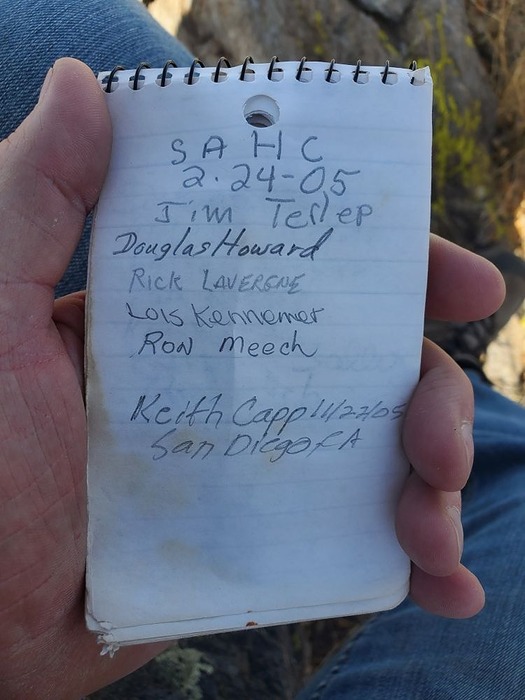 SAHC
2.24-05
Jim Terlep
Douglas Howard
Rick LAVERGNE
Lois Kennemer
Ron Meech
Keith Capp 11/22/05
San Diego CA